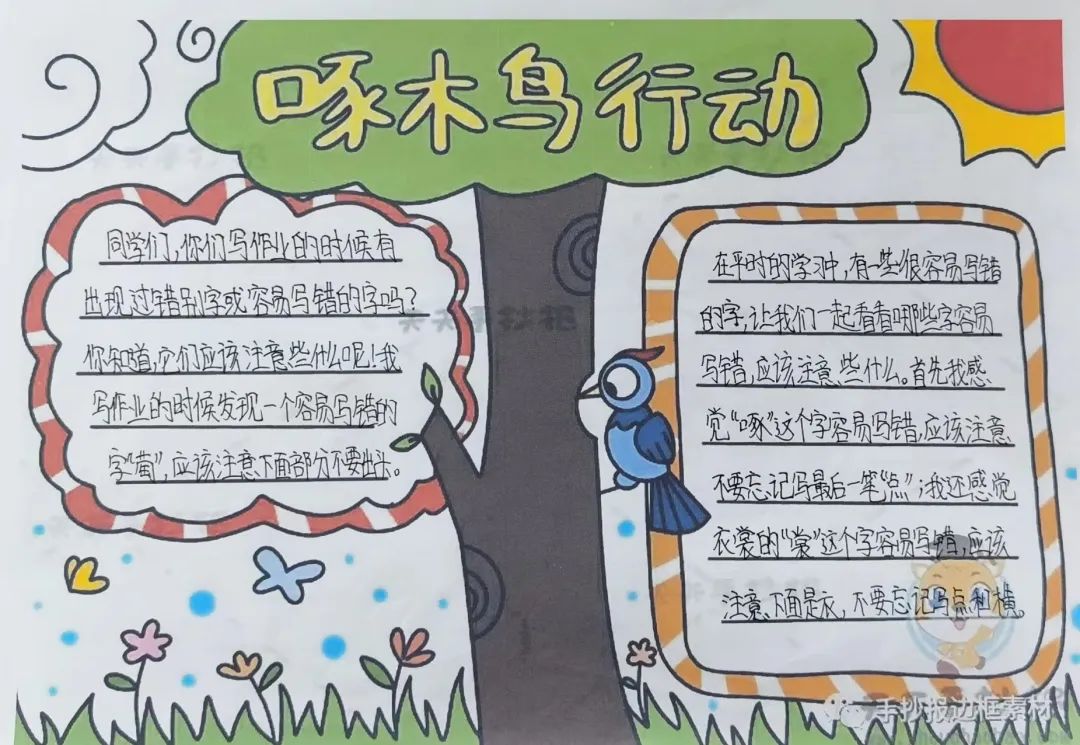 啄木鸟行动
同学们,你们写作业的时候有
出现过错别字或容易写错的字吗?
你知道,它们应该注意些什么呢!我
写作业的时候发现一个容易写错的
字“萄”,应该注意下面部分不要出头。
在平时的学习中,有一些很容易写错
的字,让我们一起看看哪些字容易
写错,应该注意些什么。首先我感
觉“啄”这个字容易写错,应该注意
不要忘记写最后一笔“点”;我还感觉
衣裳的“裳”这个字容易写错,应该
注意下面是衣,不要忘记写点和横。
手抄报边框素材